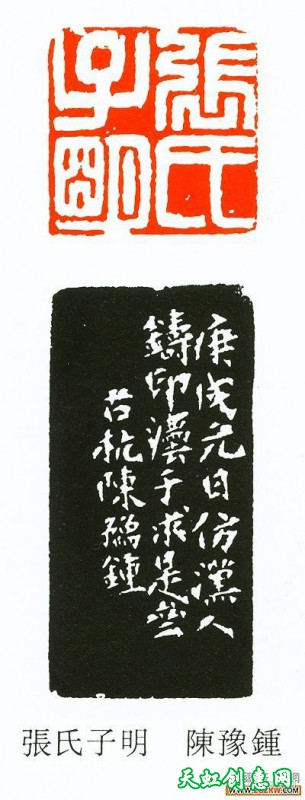 張氏
子明
庚戌元日仿漢人
鑄印灋于求是齋
古杭陳豫鍾
張氏子明 陳豫鍾
天虹创意网